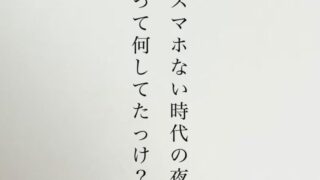 スマホない時代の夜
って何してたっけ？